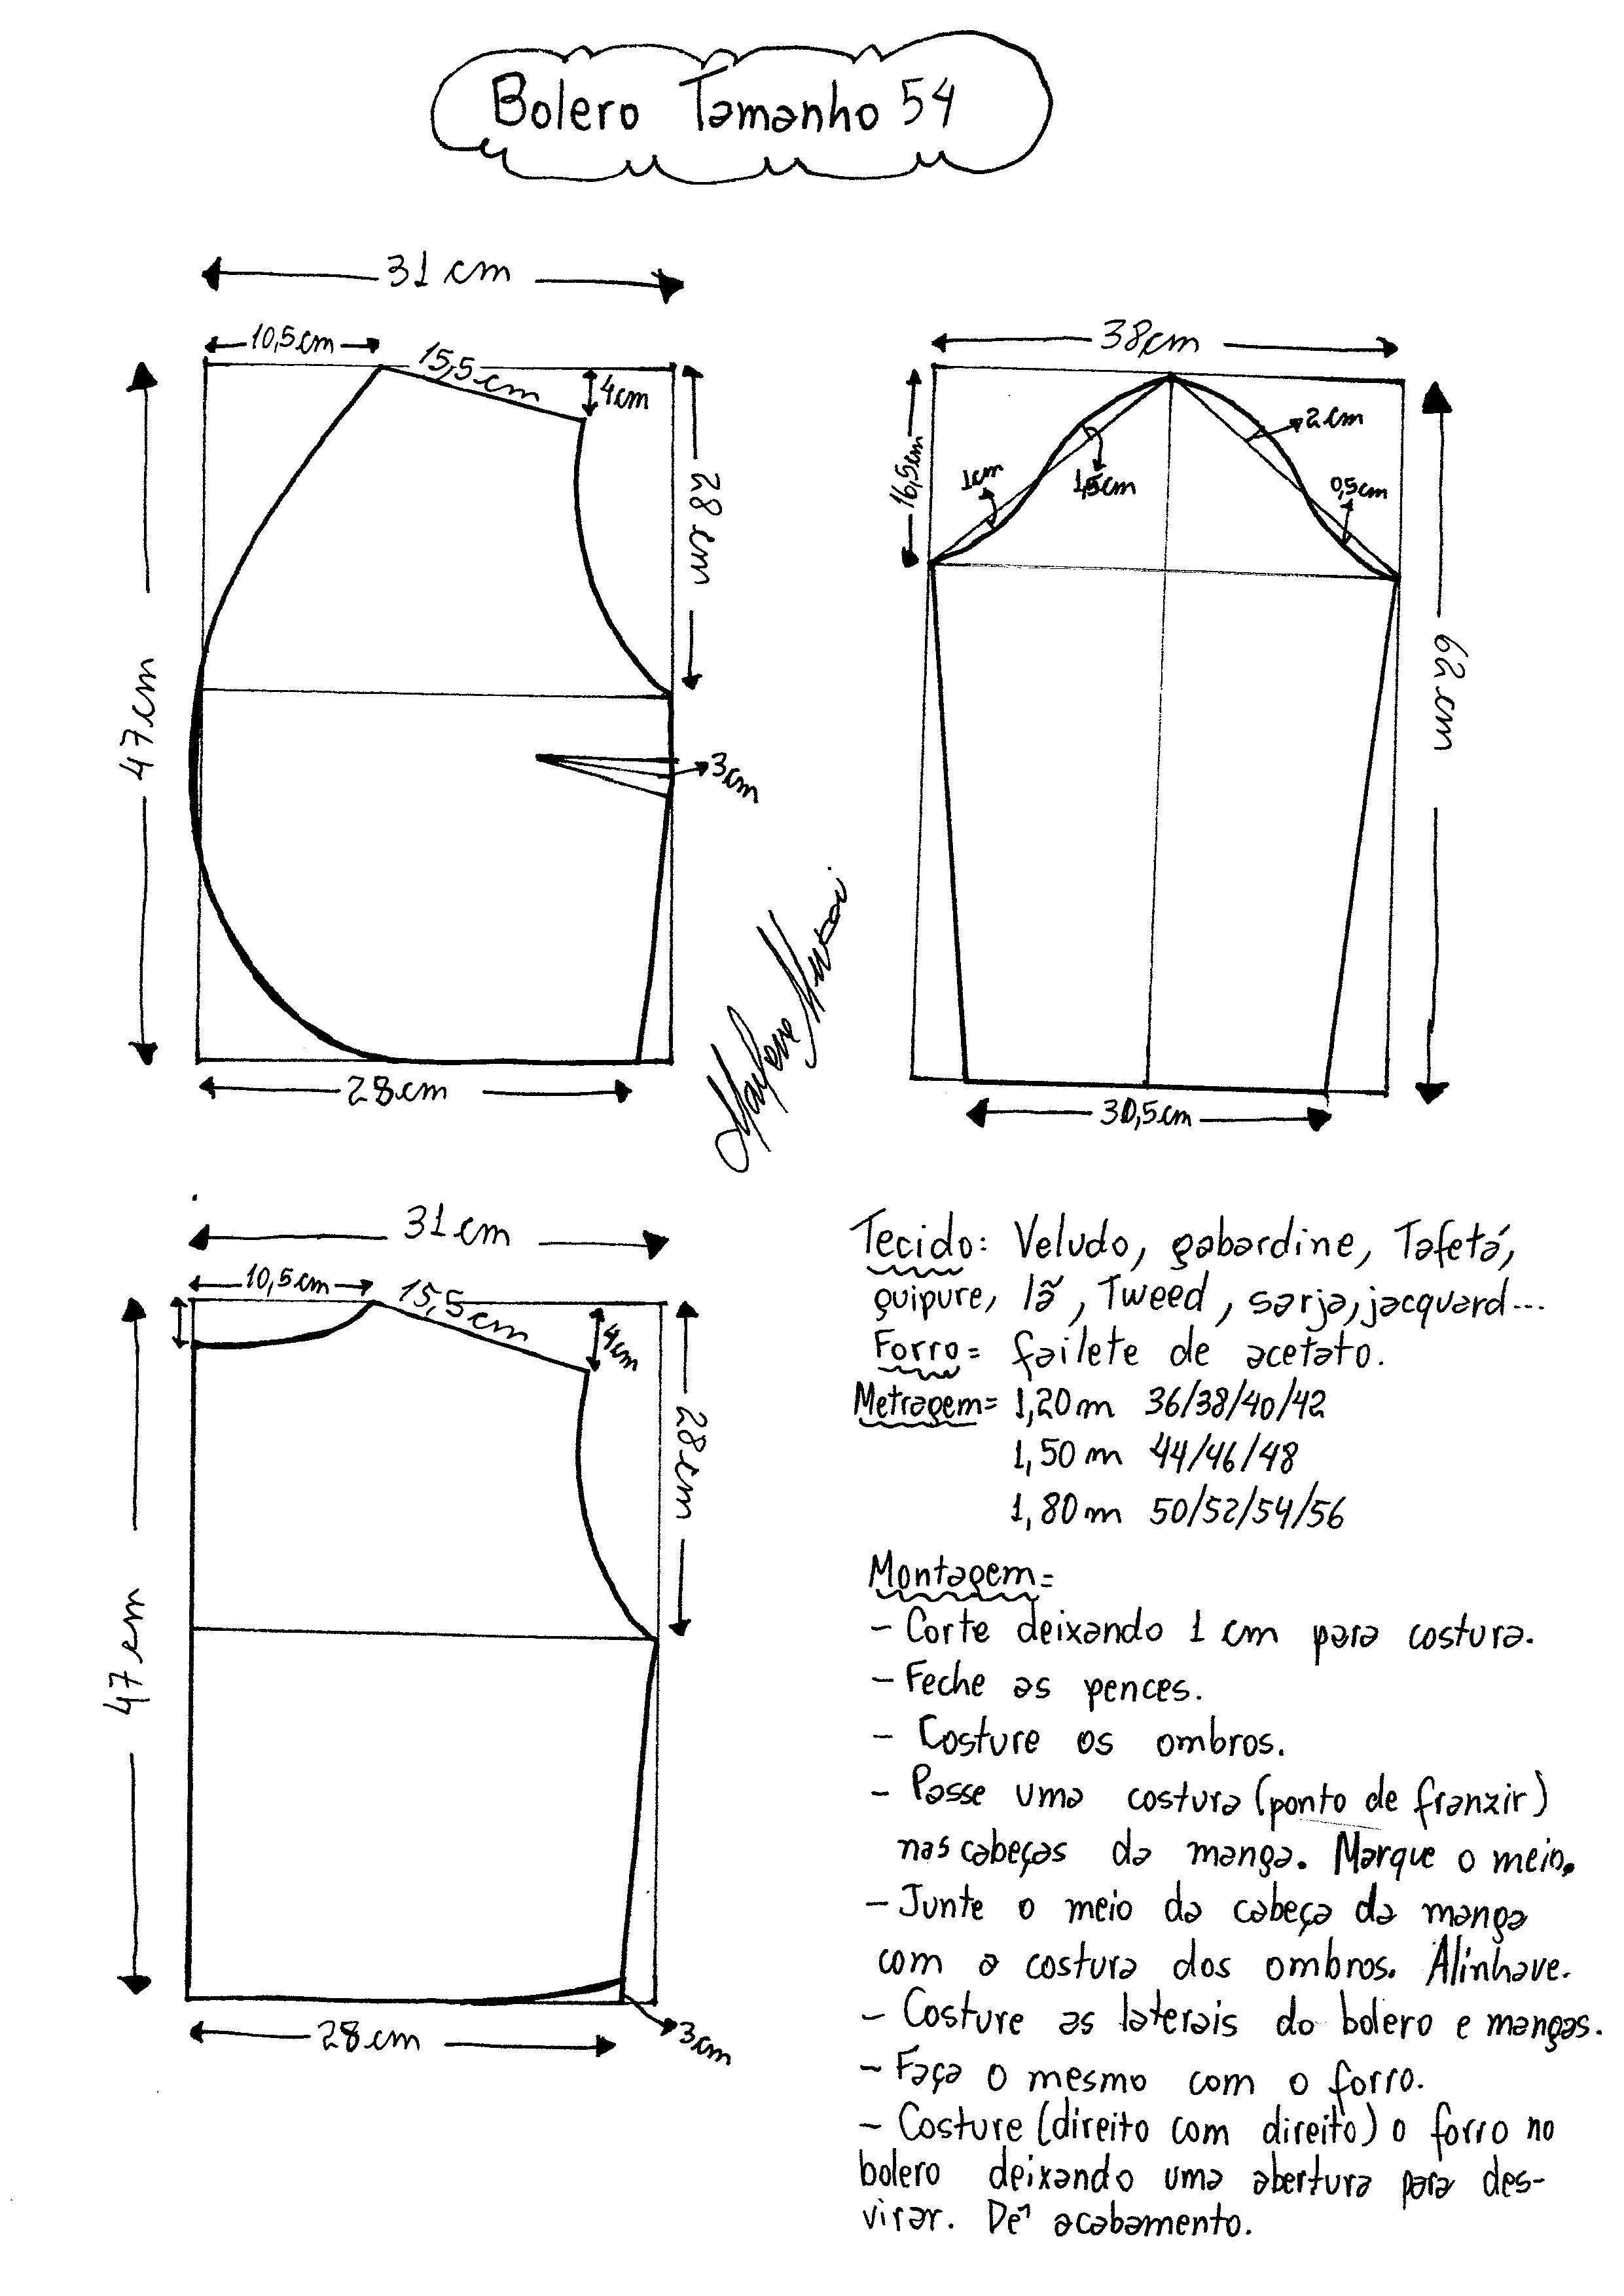 Bolero Tamanho 54
31 cm
10,5 cm
15,5 cm
4 cm
28 cm
47 cm
3 cm
28 cm
38 cm
16,5 cm
1 cm
1,5 cm
2 cm
0,5 cm
62 cm
30,5 cm
31 cm
10,5 cm
15,5 cm
4 cm
28 cm
47 cm
28 cm
3 cm
Tecido: Veludo, gabardine, Tafetá,
guipure, lã, Tweed, sarja, jacquard...
Forro= failete de acetato.
Metragem= 1,20 m 36/38/40/42
1,50 m 44/46/48
1,80 m 50/52/54/56
Montagem=
- Corte deixando 1 cm para costura.
- Feche as pences.
- Costure os ombros.
- Passe uma costura (ponto de franzir)
nas cabeças da manga. Marque o meio.
- Junte o meio da cabeça da manga
com a costura dos ombros. Alinhave.
- Costure as laterais do bolero e mangas.
- Faça o mesmo com o forro.
- Costure (direito com direito) o forro no
bolero deixando uma abertura para des-
virar. Dê acabamento.